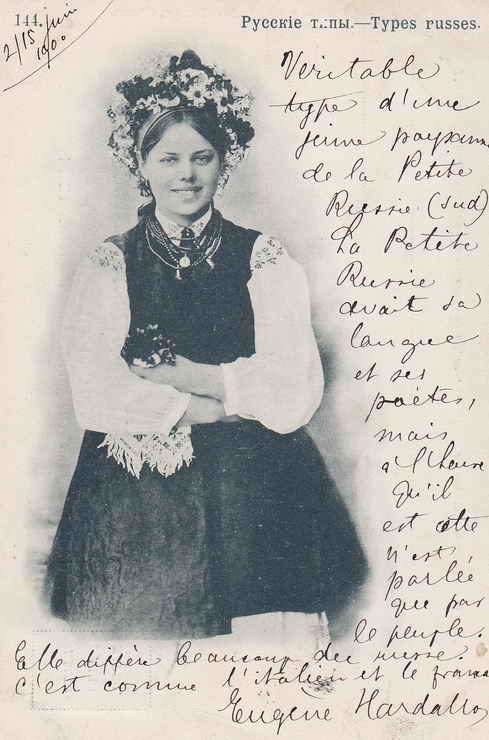 144.
Русскіе типы.—Types russes.
2/15 juin
1900
Veritable
type d'une
jeune paysanne
de la Petite
Russie (sud)
La Petite
Russie
avait sa
langue
et ses
poètes,
mais
à l'heure
qu'il
est cette
n'est
parlée
que par
le peuple.
Elle diffère beaucoup du russe.
c'est comme l'italien et le français
Eugène